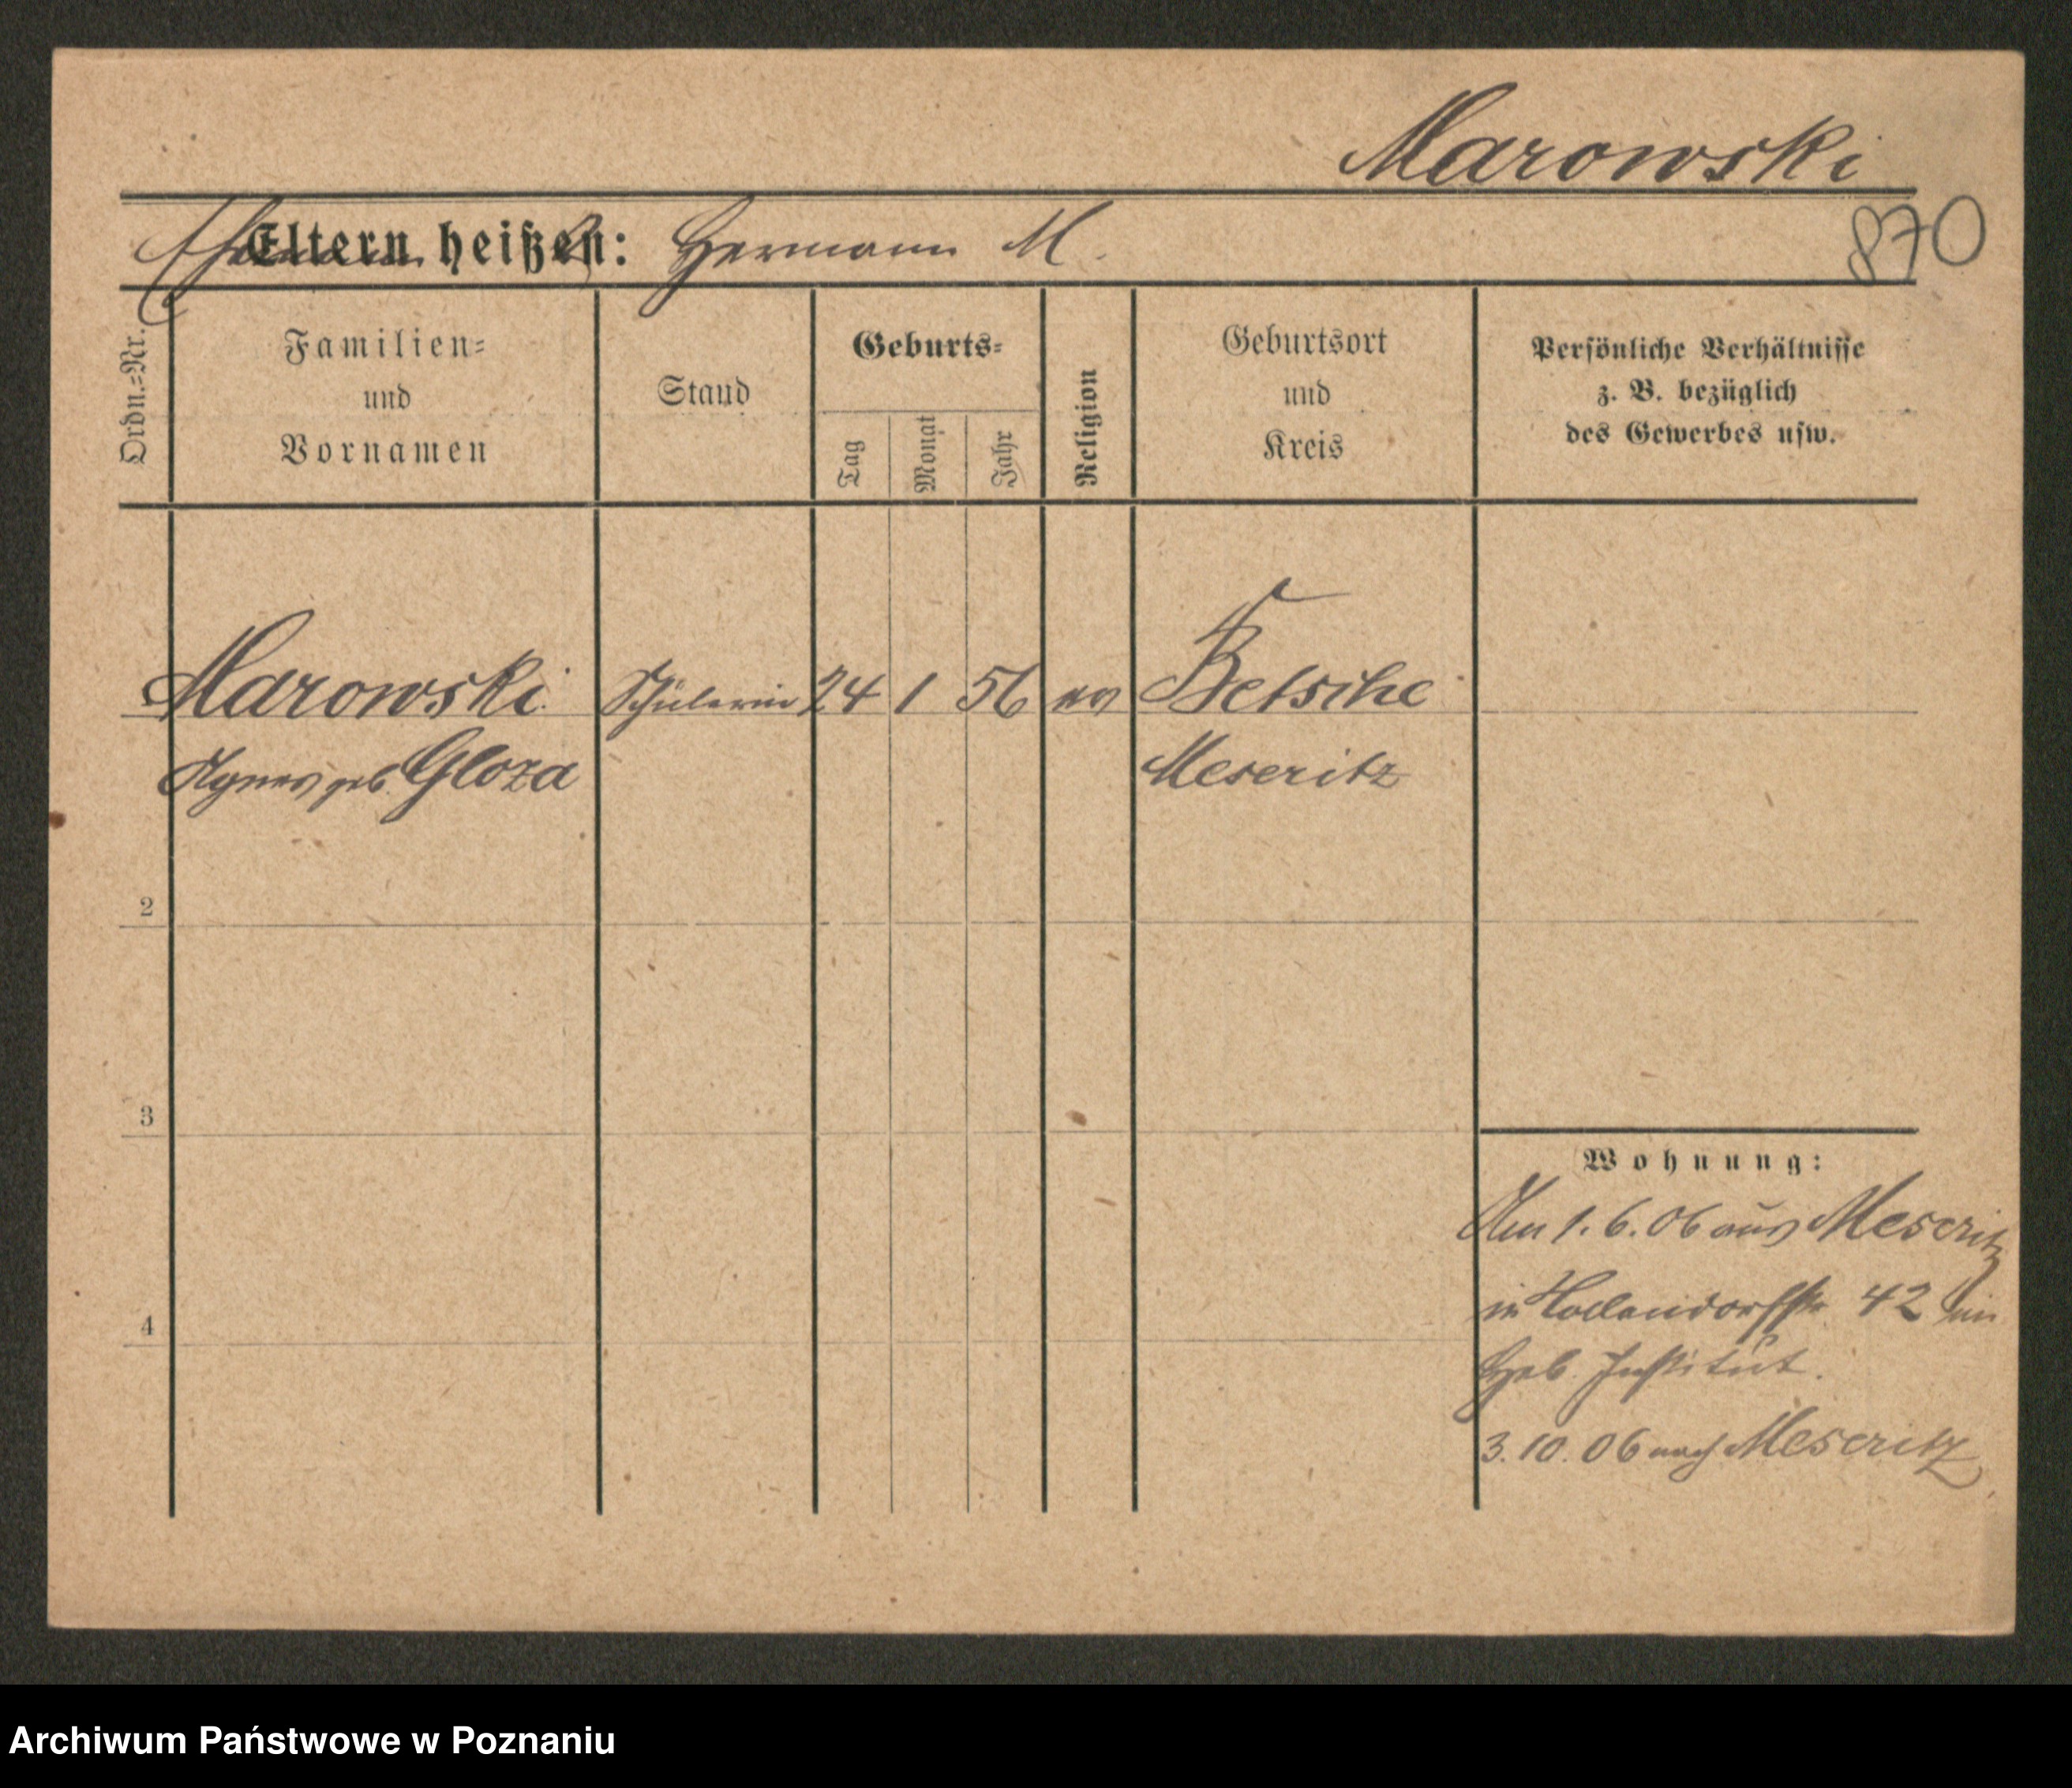 Marowski
870
Eltern heißen: Hermann M.
Ordn.-Nr.
Familien-
und
Vornamen
Stand
Geburts-
Tag
Monat
Jahr
Religion
Geburtsort
und
Kreis
Persönliche Verhältnisse
z. B. bezüglich
des Gewerbes usw.
Marowski Schülerin 24 1 56 ev Betsche
Agnes geb. Gloza Meseritz
2
3
4
Wohnung:
Am 1. 6. 06 aus Meseritz
in 42 im
Heb. Institut.
3. 10. 06 nach Meseritz
Archiwum Państwowe w Poznaniu